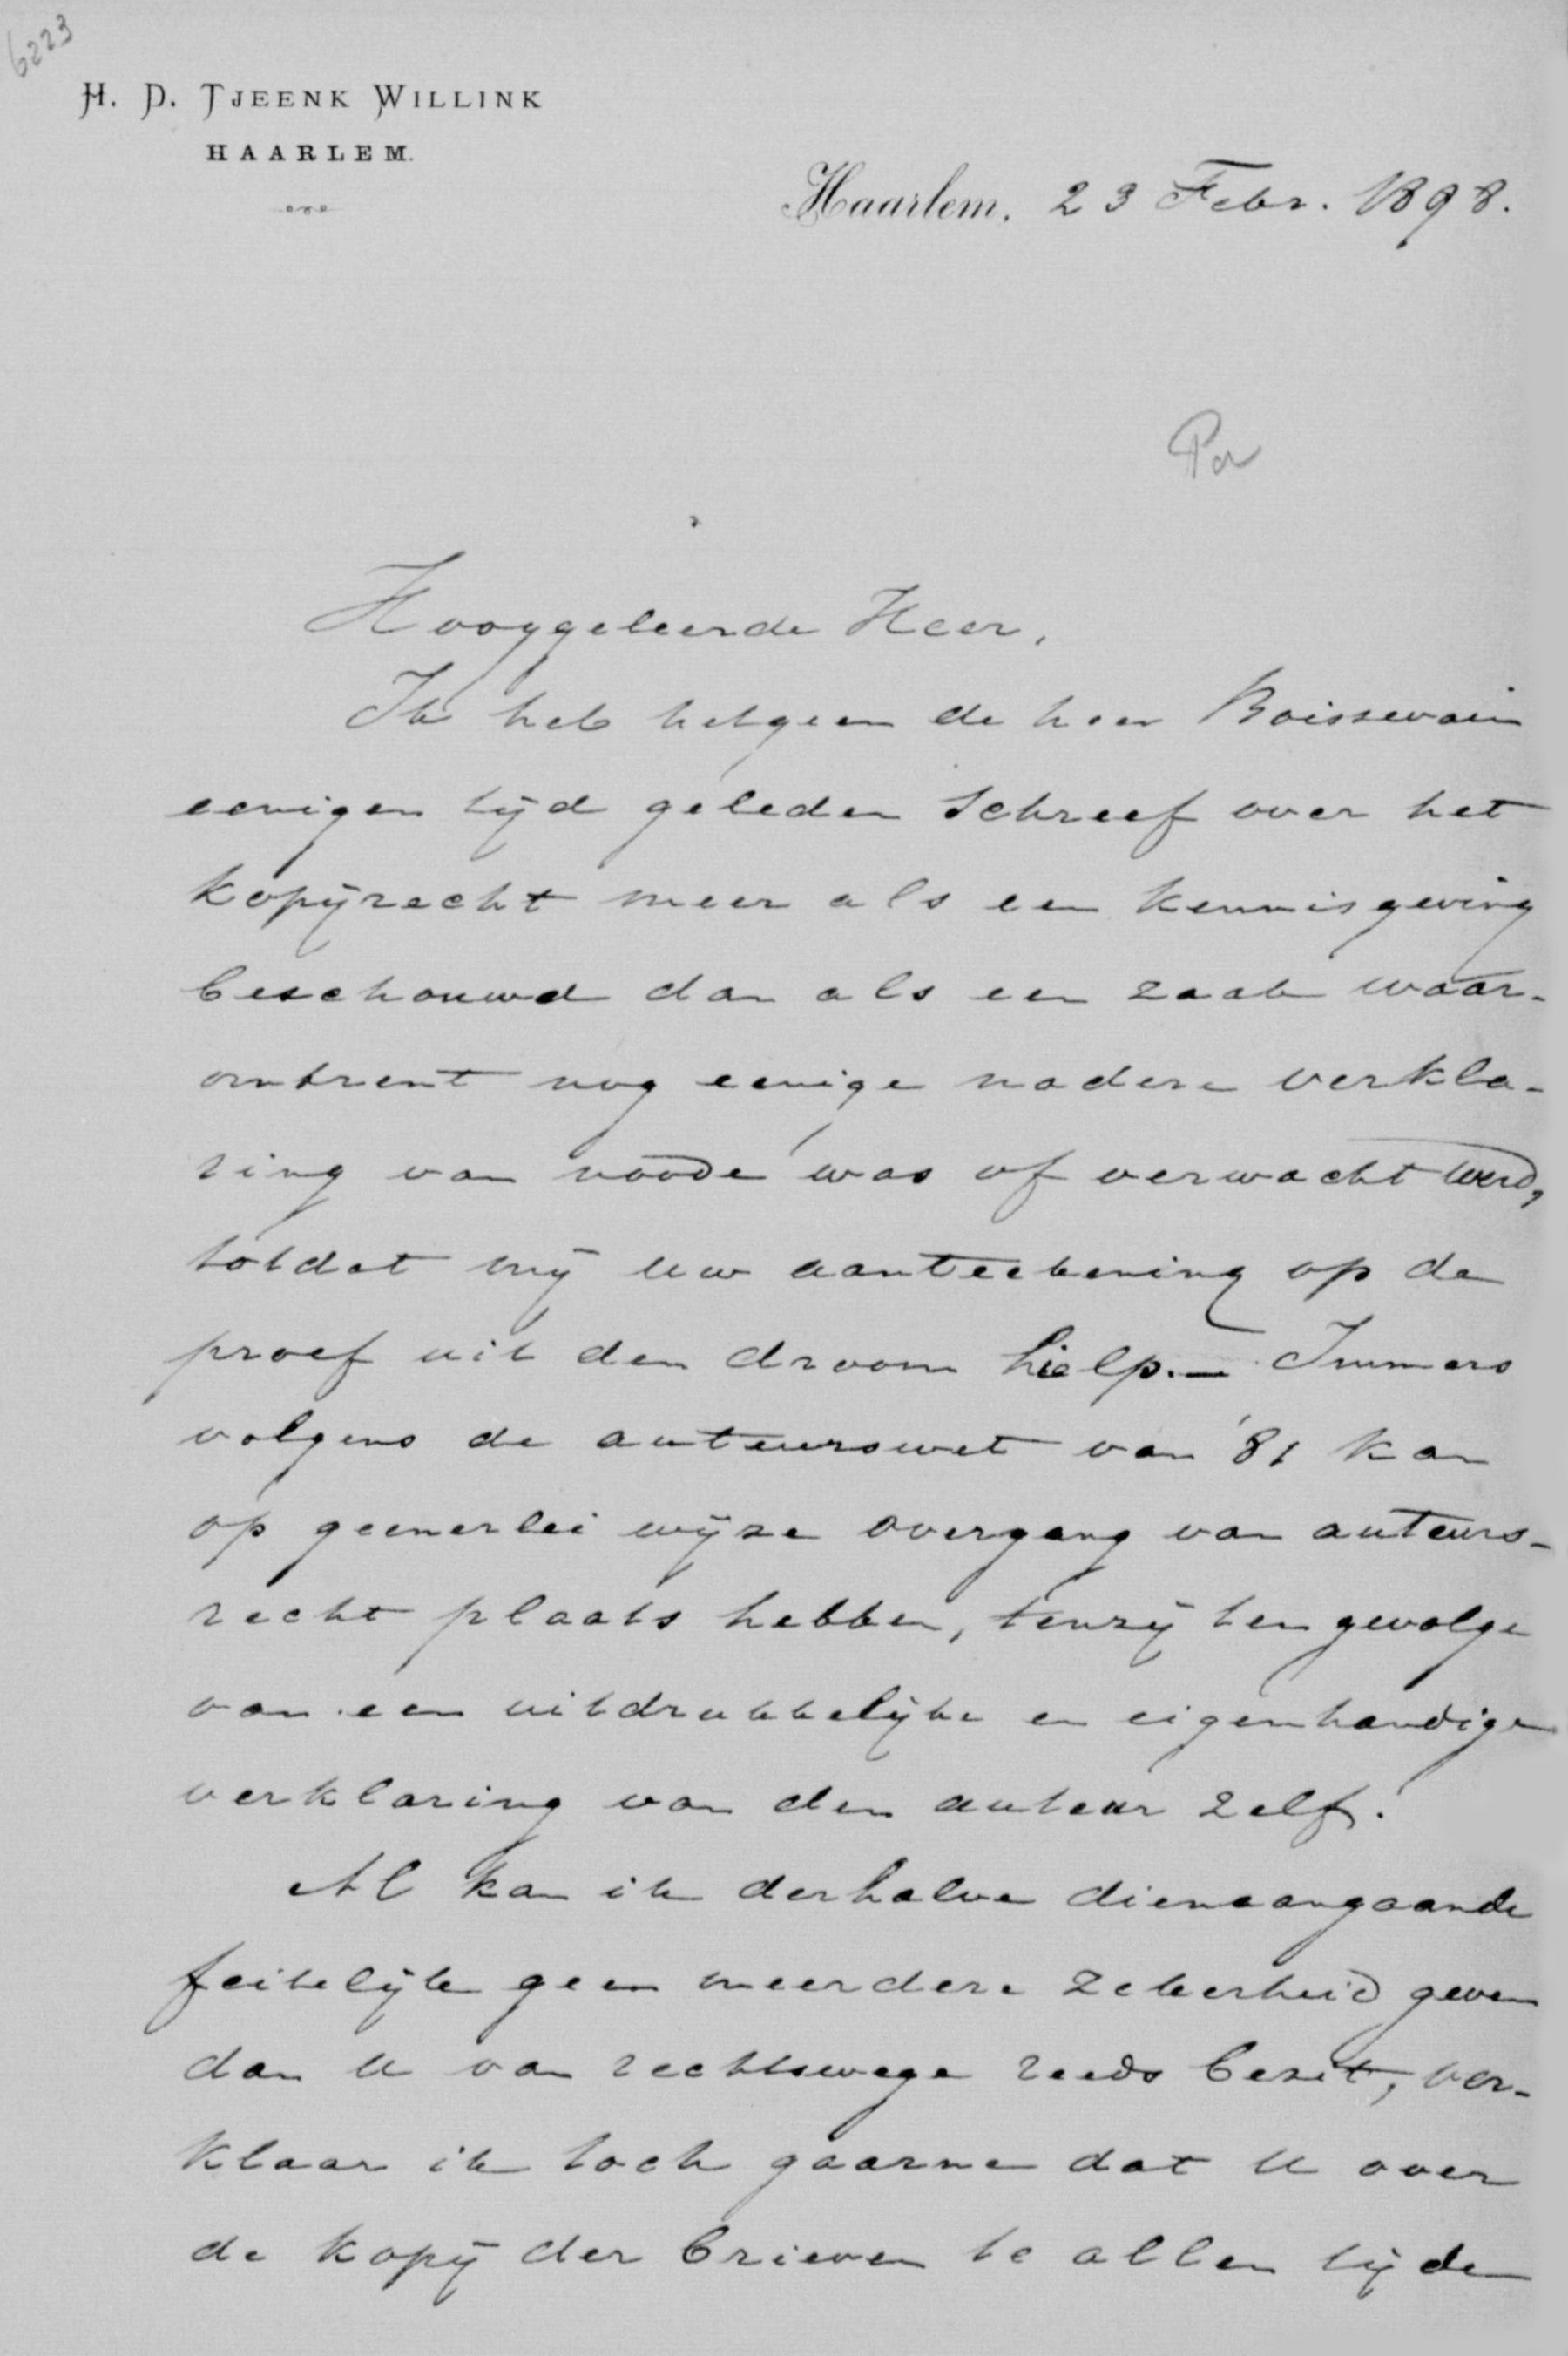 6223
H. D. TJEENK WILLINK
HAARLEM.
Haarlem, 23 Febr. 1898.
Hooggeleerde Heer,
Ik heb hetgeen de heer Boissevain
eenigen tijd geleden schreef over het
kopijrecht meer als een kennisgeving
beschouwd dan als een zaak waar-
omtrent nog eenige nadere verkla-
ring van noode was of verwacht werd,
totdat mij uw aanteekening op de
proef uit den droom hielp. — Immers
volgens de auteurswet van '81 kan
op geenerlei wijze overgang van auteurs-
recht plaats hebben, tenzij ten gevolge
van een uitdrukkelijke en eigenhandige
verklaring van den auteur zelf.
Al kan ik derhalve dienaangaande
feitelijk geen meerdere zekerheid geven
dan U van rechtswege reeds bezit, ver-
klaar ik toch gaarne dat U over
de kopij der brieven te allen tijde